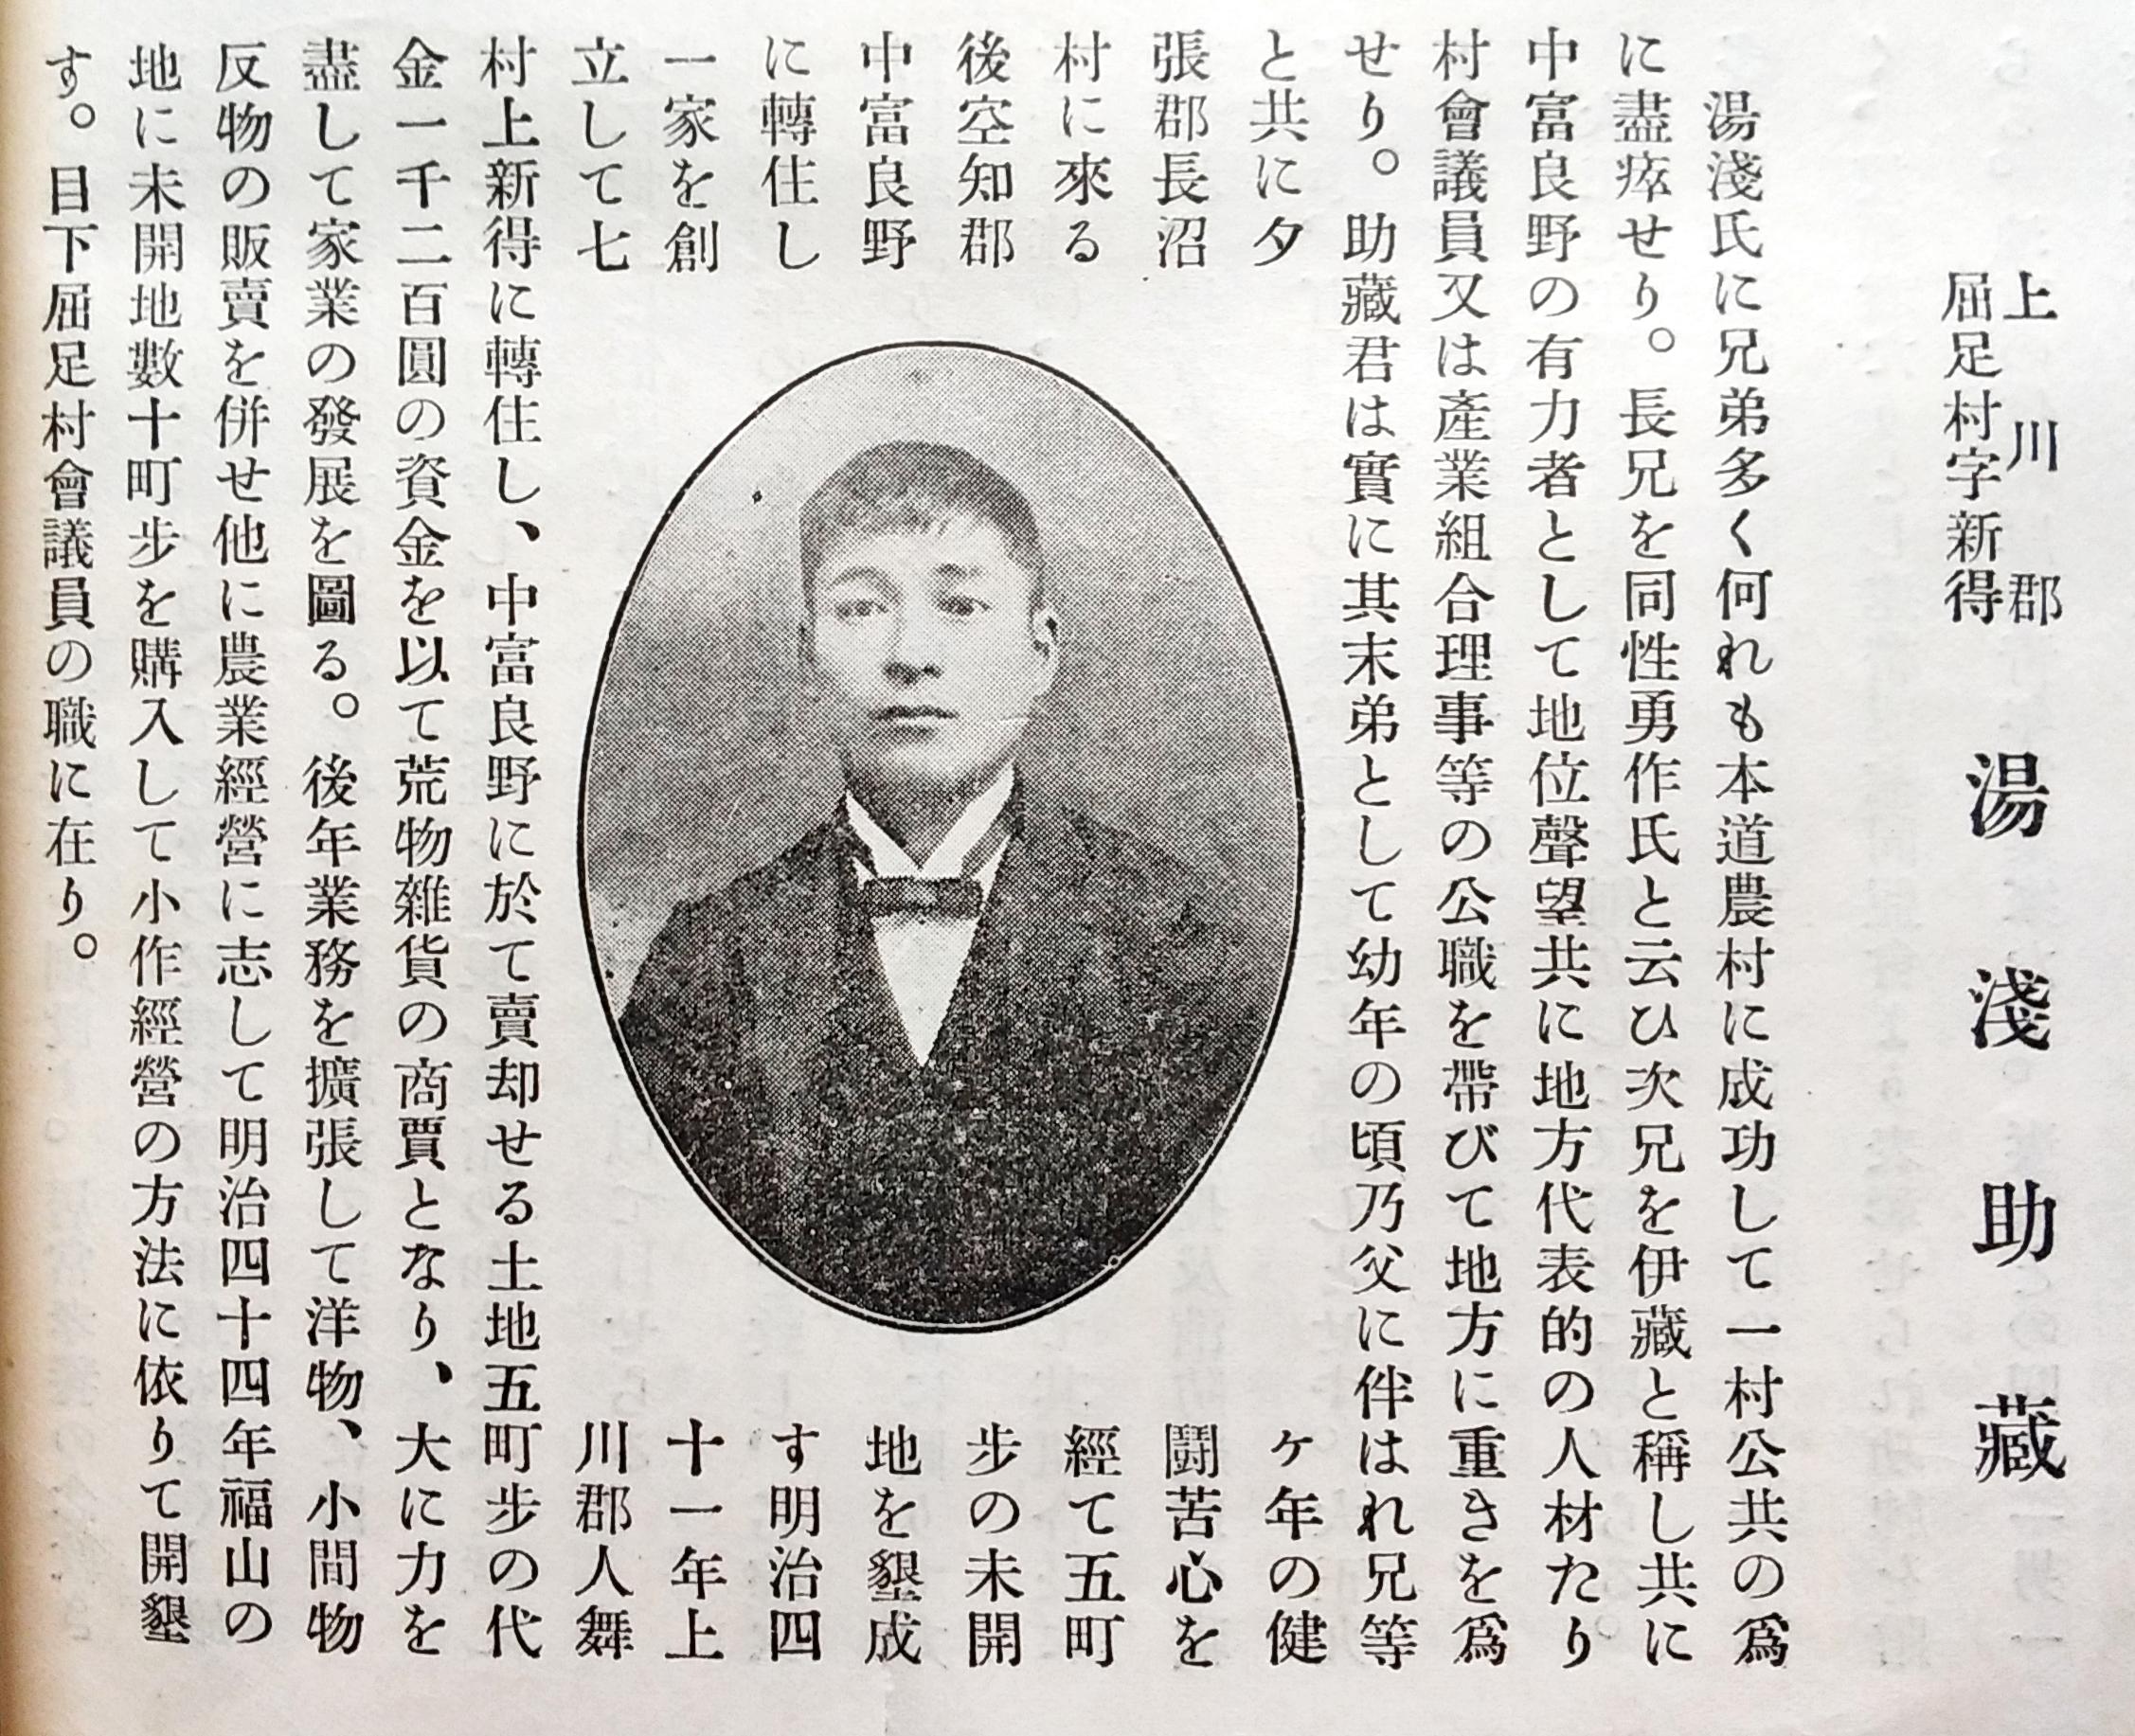 上川郡
屈足村字新得
湯淺助藏
湯淺氏に兄弟多く何れも本道農村に成功して一村公共の爲
に盡瘁せり。長兄を同性勇作氏と云ひ次兄を伊藏と稱し共に
中富良野の有力者として地位聲望共に地方代表的の人材たり
村會議員又は產業組合理事等の公職を帶びて地方に重きを爲
せり。助藏君は實に其末弟として幼年の頃乃父に伴はれ兄等
と共に夕
張郡長沼
村に來る
後空知郡
中富良野
に轉住し
一家を創
立して七
ヶ年の健
鬪苦心を
經て五町
步の未開
地を墾成
す明治四
十一年上
川郡人舞
村上新得に轉住し、中富良野に於て賣却せる土地五町步の代
金一千二百圓の資金を以て荒物雜貨の商賈となり、大に力を
盡して家業の發展を圖る。後年業務を擴張して洋物、小間物
反物の販賣を併せ他に農業經營に志して明治四十四年福山の
地に未開地數十町步を購入して小作經營の方法に依りて開墾
す。目下屈足村會議員の職に在り。